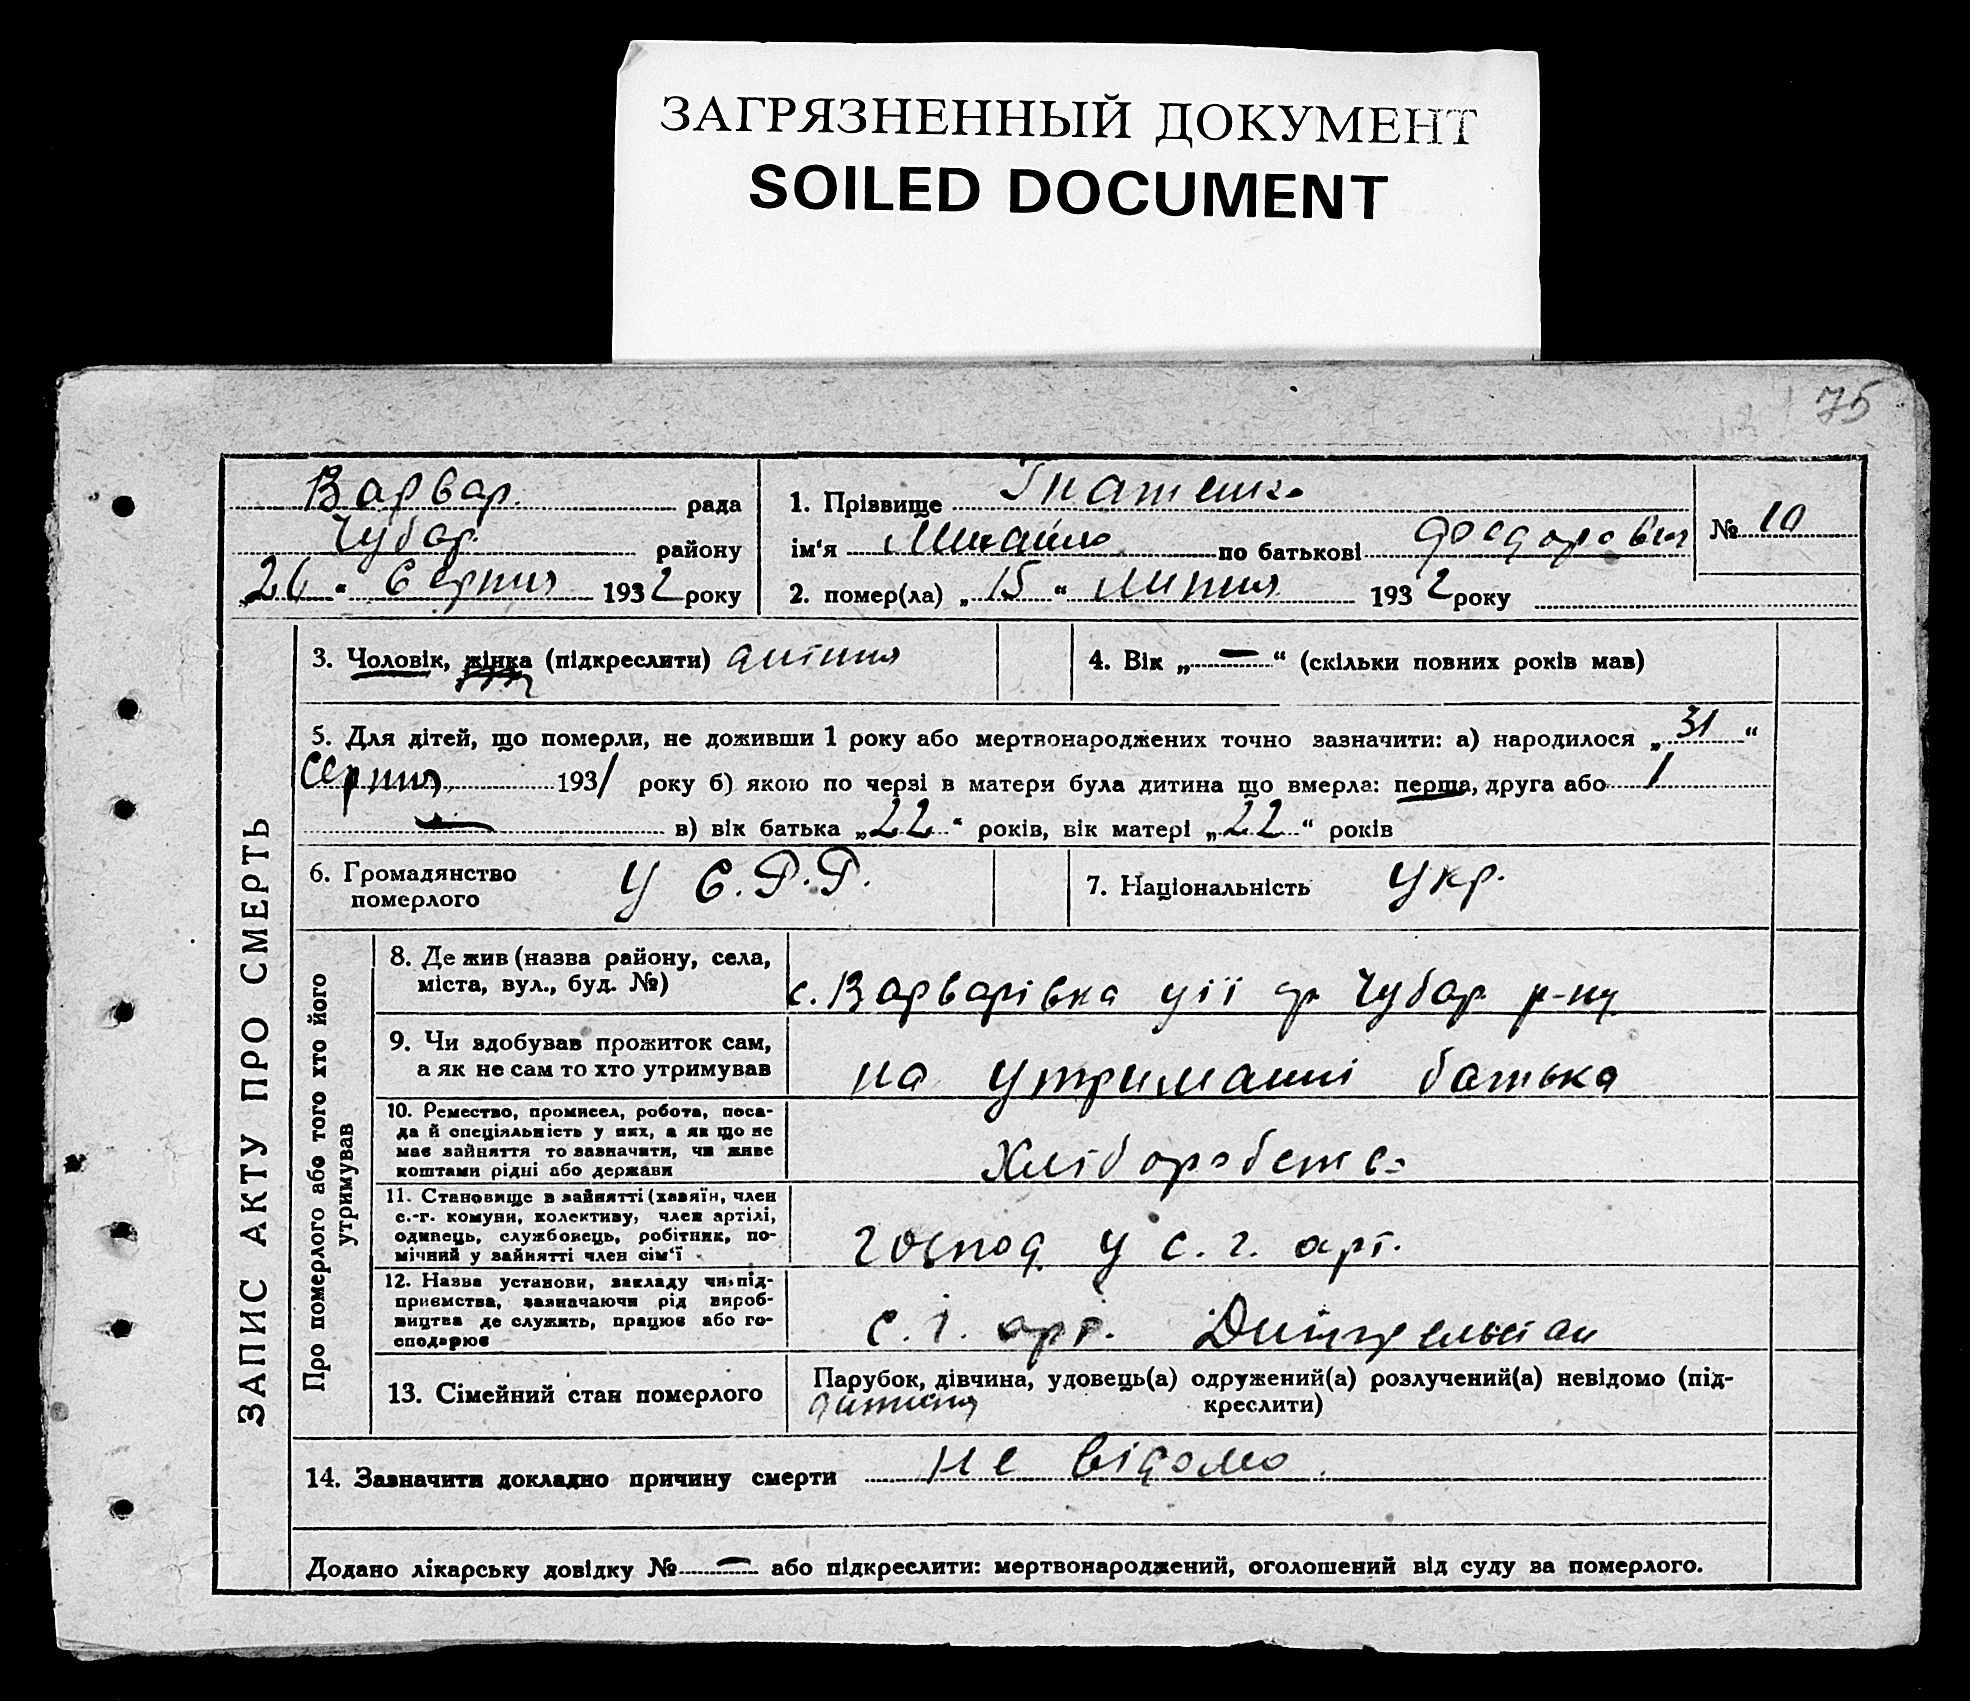 ЗАГРЯЗНЕННЫЙ ДОКУМЕНТ
SOILED DOCUMENT
75
Варвар. рада
Чубар. району
„26“ Серпня 1932 року
1. Прізвище Гнатенко
ім'я Михайло по батькові Федорович
2. помер(ла) „15“ липня 1932 року
№ 10
ЗАПИС АКТУ ПРО СМЕРТЬ
3. Чоловік, жінка (підкреслити)
4. Вік „—“ (скільки повних років мав)
5. Для дітей, що померли, не доживши 1 року або мертвонароджених точно зазначити: а) народилося „31“
Серпня 1931 року б) якою по черзі в матери була дитина що вмерла: перша, друга або 1
— в) вік батька „22“ років, вік матері „22“ років
6. Громадянство
померлого
У С.Р.Р.
7. Національність Укр.
Про померлого або того хто його
утримував
8. Де жив (назва району, села,
міста, вул., буд. №)
с. Варварівка ції ж Чубар. р-ну
9. Чи здобував прожиток сам,
а як не сам то хто утримував
на утриманні батька
10. Ремество, промисел, робота, поса-
да й спеціяльність у них, а як що не
має зайняття то зазначити, чи живе
коштами рідні або держави
Хліборобство
11. Становище в зайнятті (хазяїн, член
с.-г. комуни, колективу, член артілі,
одинець, службовець, робітник, по-
мічний у зайнятті член сім'ї
господ. у с. г. арт.
12. Назва установи, закладу чи під-
приємства, зазначаючи рід вироб-
ництва де служить, працює або го-
сподарює
с. г. арт.
13. Сімейний стан померлого
Парубок, дівчина, удовець(а) одружений(а) розлучений(а) невідомо (під-
креслити)
дитина
14. Зазначити докладно причину смерти не відомо.
Додано лікарську довідку № — або підкреслити: мертвонароджений, оголошений від суду за померлого.